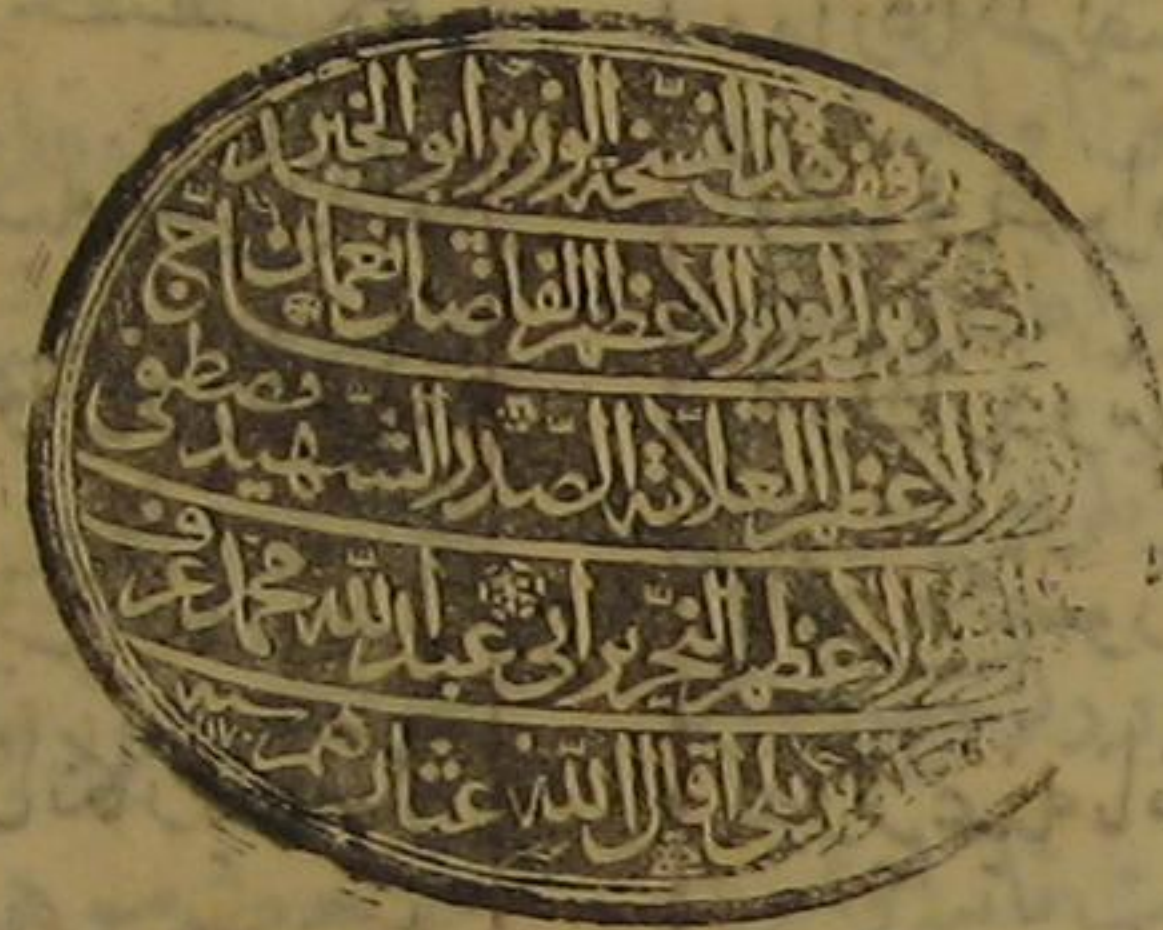 وقف هذه النسخة الوزير ابو الخير
احمد بن الوزير الأعظم الفاضل نعمان
الأعظم العلامة الصدر الشهيد مصطفى
الأعظم النحرير ابي عبد الله محمد عرف
اقال الله عثارهم سنه ١١٧٠